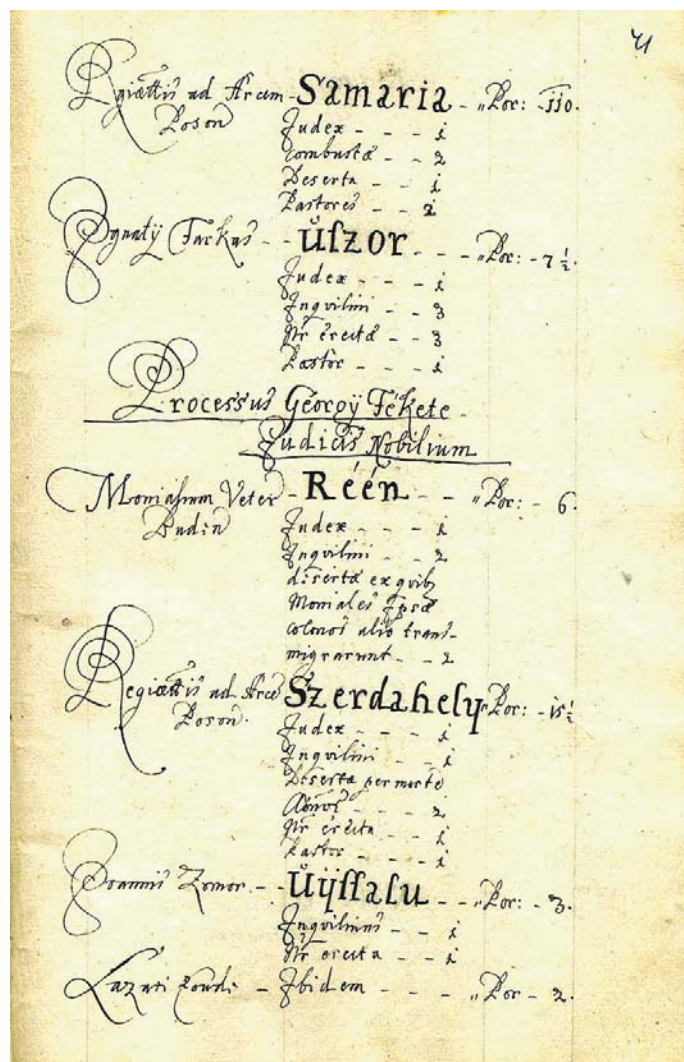 71
Regiættis ad Arcem - Samaria - „Por: - 110.
Poson
Judex - - - 1
combustæ - - 2
Deserta - - 1
Pastores - - 2
Ignatÿ Farkas - - ůszor - - - „Por: - 7 1/2.
Judex - - - 1
Inqvilini - - 3
Nr erectæ - - 3
Pastor - - - 1
Processus Georgÿ Fekete
Judicis Nobilium
Monialium Veter - Réén - - „Por: - 6.
Budin
Judex - - - 1
Inqvilini - - 2
disertæ ex qvib9
Moniales Ipsæ
colonos alio trans-
migrarunt - - 2
Regiættis ad Arcē Szerdahely „Por: - 15 1/2
Poson.
Judex - - - 1
Inqvilini - - 1
Deserta per morte
2
Nr erecta - - 1
Pastor - - - 1
Joannis Zomor - - Ůÿffalu - - „Por: - 3.
Inqvilinus - - 1
Nr erecta - - 1
Lazari - Ibidem - - - „Por - 2.